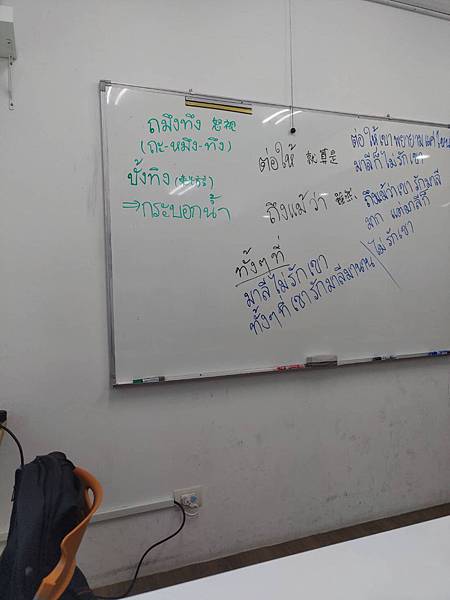 ถมึงทึง
(ถะ-หมึง-ทึง)
บั้งทิง
⇒กระบอกน้ำ
ต่อให้ 就算是
ถึงแม้ว่า
ทั้งๆที่
มาลีไม่รักเขา
ทั้งๆที่เขารักมาลีมานาน
ต่อให้เขาพยายามแค่ไหน
มาลีก็ไม่รักเขา
ถึงแม้ว่าเขารักมาลี
มาก แต่มาลีก็
ไม่รักเขา